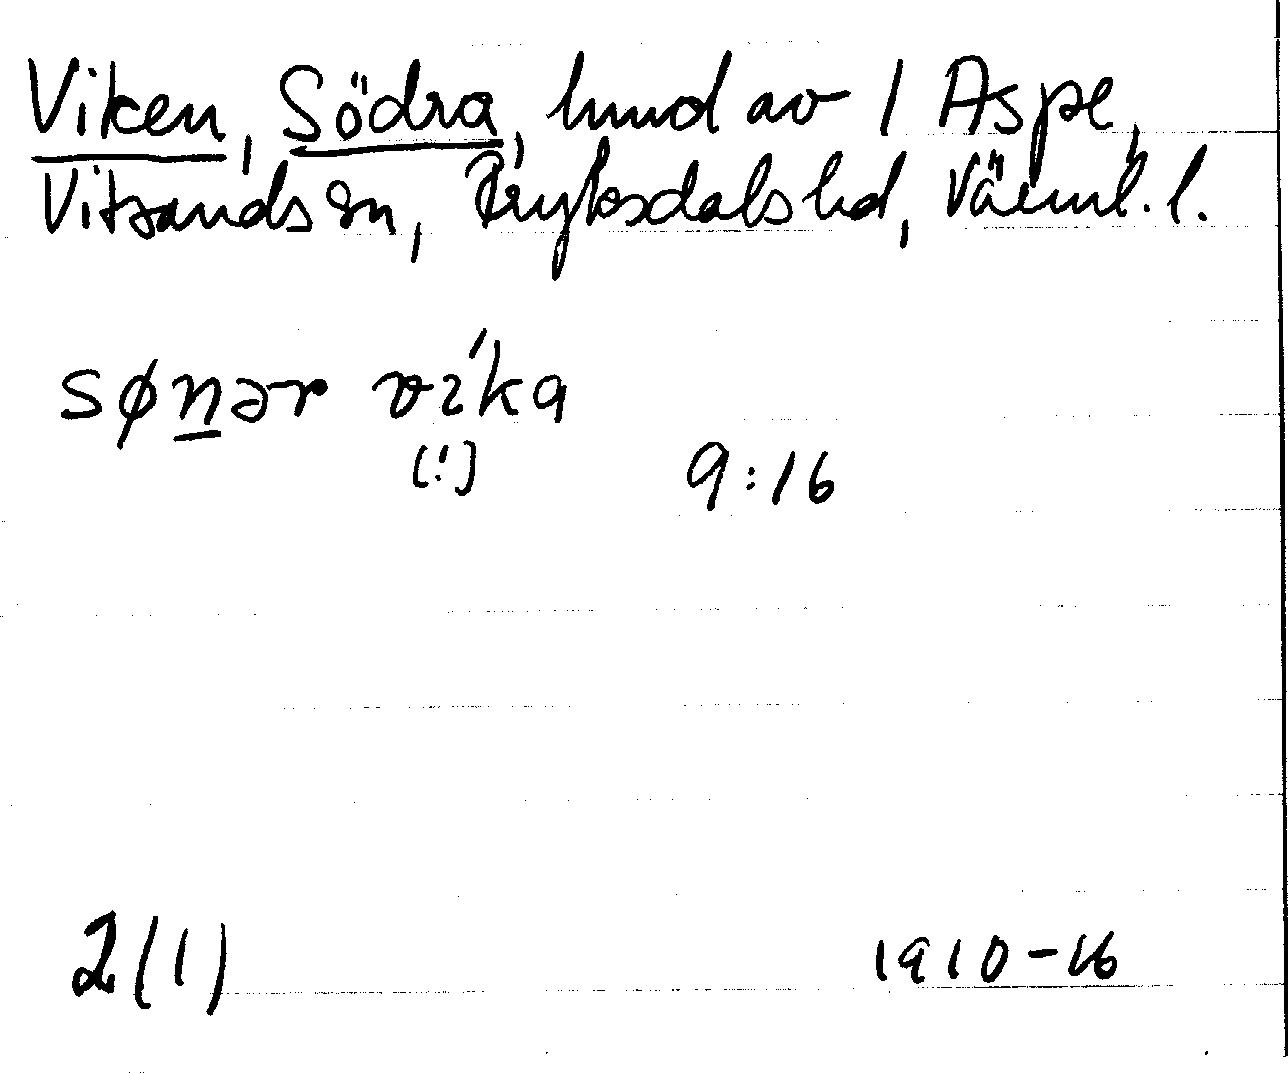 Viken, Södra, hmd av 1 Aspe,
Vitsands sn, Fryksdals hd, Värml. l.
sønər víka
(!)
9:16
2(1)
1910-16